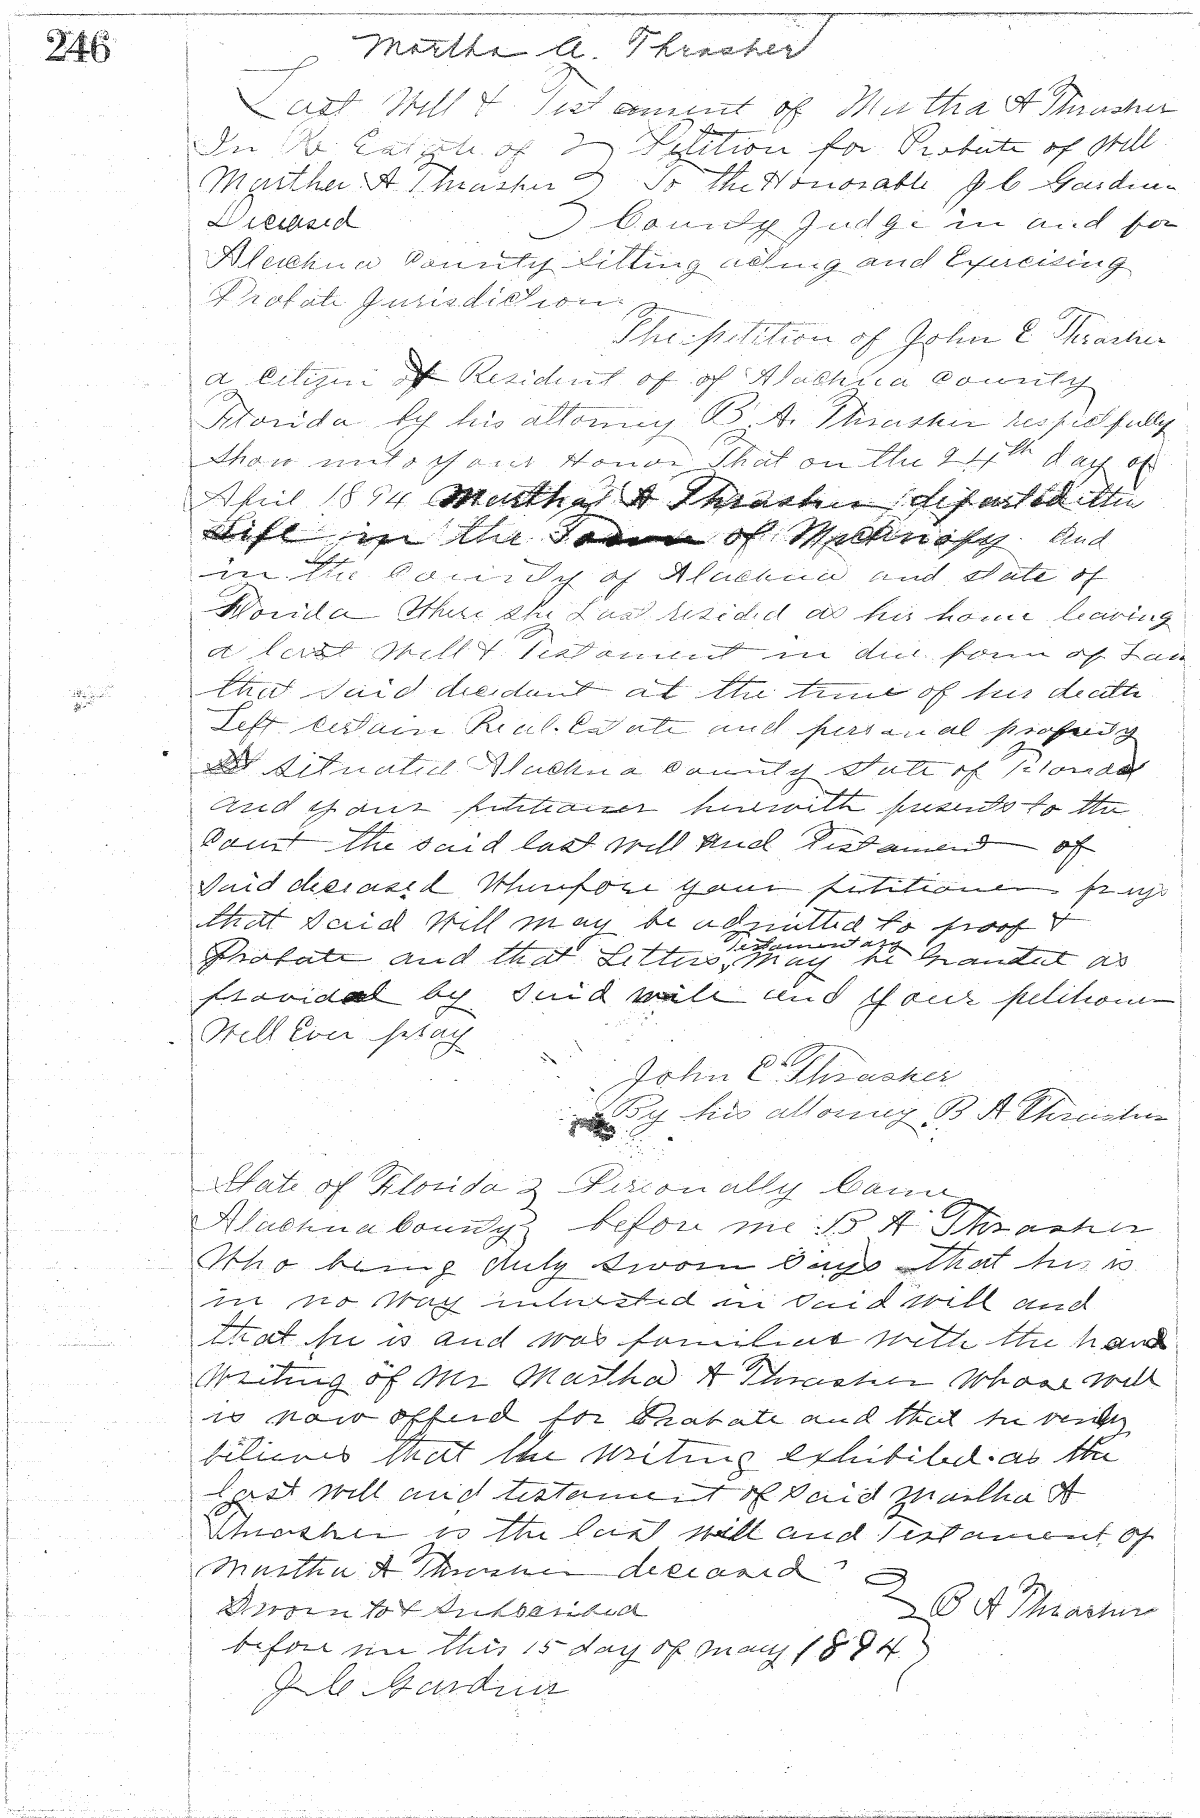 246
Martha A. Thrasher
Last Will & Testament of Martha A Thrasher
In Re Estate of } Petition for Probate of Will
Marther A Thrasher } To the Honorable J C Gardner
Deceased } County Judge in and for
Alachua County Sitting acting and Exercising
Probate Jurisdiction
The petition of John E Thrasher
a citizen & Resident of of Alachua county
Florida by his attorney B. A. Thrasher respectfully
show unto your Honor That on the 24th day of
April 1894 Martha A Thrasher departed this
Life in the Town of Micanopy and
in the County of Alachua and state of
Florida Where she Last resided as his home leaving
a last Will & Testament in due form of Law
that said decedant at the time of her death
Left certain Real Estate and personal property
situated Alachua county state of Florida
and your petitioner herewith presents to the
Court the said last will and Testament of
said deceased Wherefore your petitioner prays
that said Will may be admitted to proof &
Probate and that Letters Testamentary may be Granted as
provided by said will and your petitioner
Will Ever pray
John E. Thrasher
By his attorney B A Thrasher
State of Florida } Personally Came
Alachua County } before me B A Thrasher
Who being duly sworn Says that he is
in no way interested in said will and
that he is and was familiar with the hand
writing of Mr Martha A Thrasher whose will
is now offerd for Probate and that he verily
believes that the writing exhibited as the
last will and testament of said Martha A
Thrasher is the last will and Testament of
Martha A Thrasher deceased
Sworn to & Subscribed } B A Thrasher
before me this 15 day of May 1894 }
J C Gardner